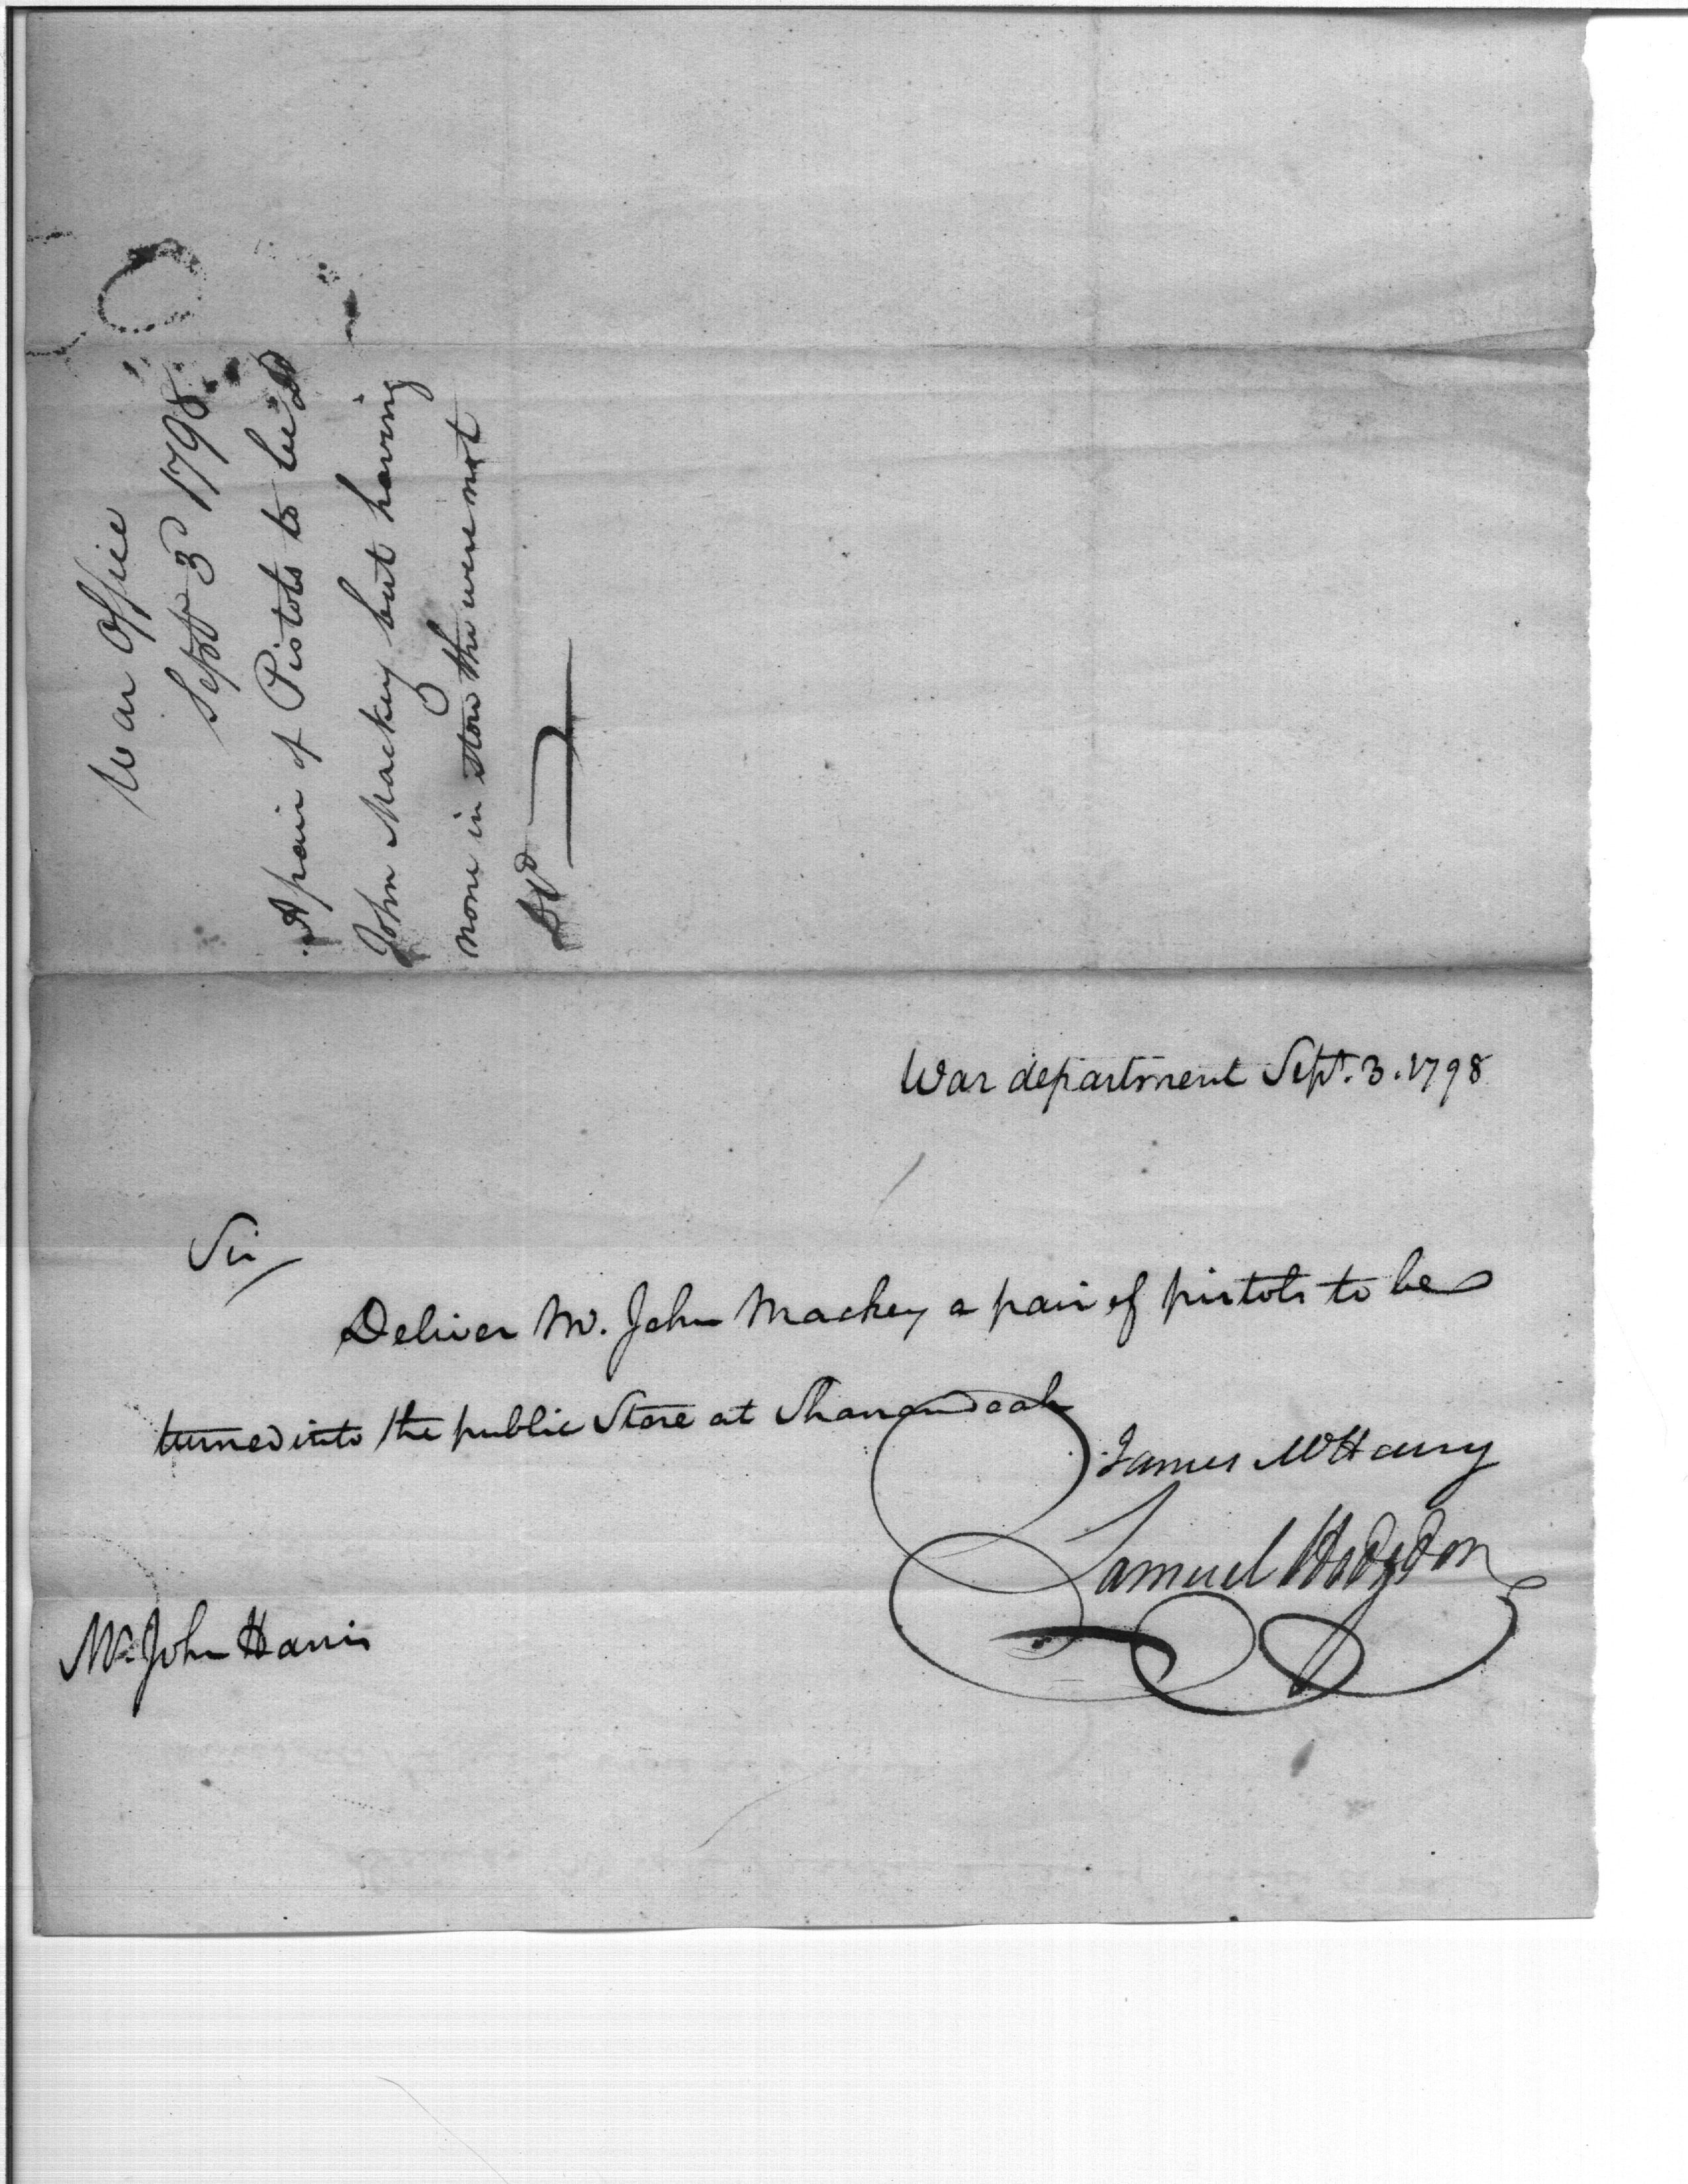 War Office
Sept 3d 1798
A pair of Pistols to be dd
John Mackey but having
none in store the were not
dd
War department Sept. 3. 1798
Sir
Deliver Mr. John Mackey a pair of pistols to be
turned into the public Store at Shanandoah
James McHenry
Samuel Hodgdon
Mr. John Harris